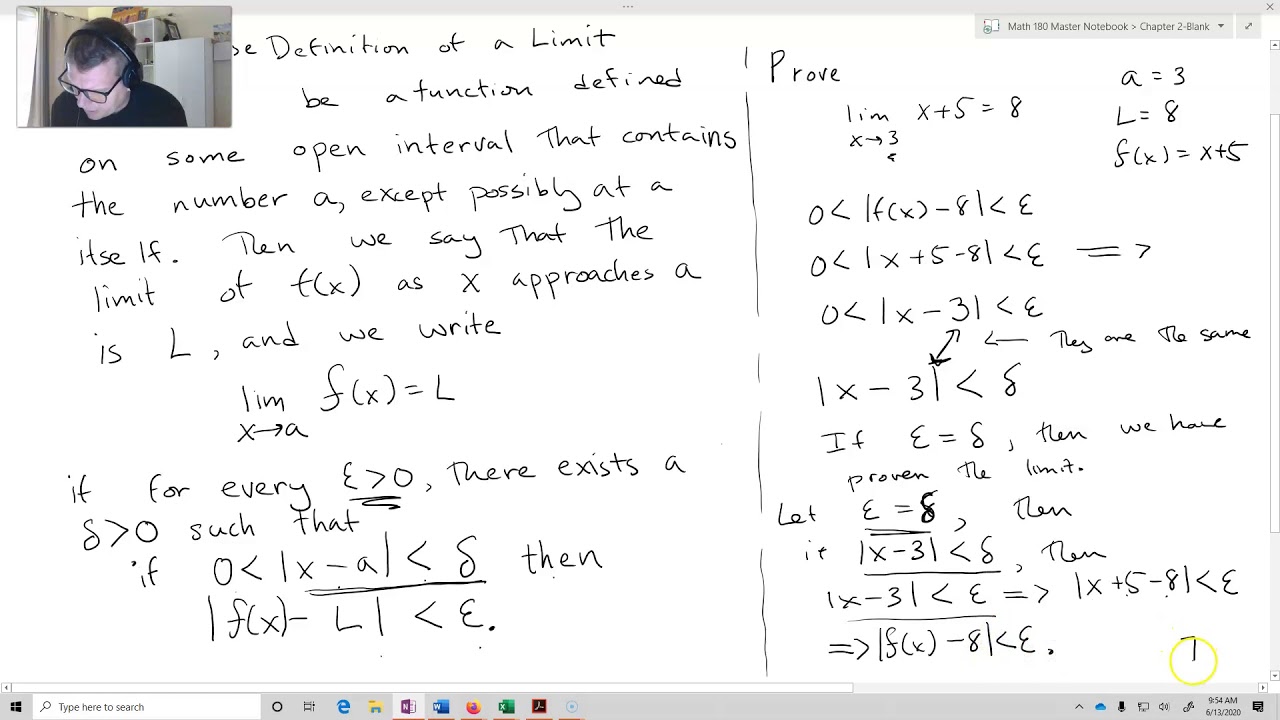 Math 180 Master Notebook > Chapter 2-Blank
Definition of a Limit
be a function defined
on some open interval that contains
the number a, except possibly at a
itself. Then we say that the
limit of f(x) as x approaches a
is L, and we write
lim f(x) = L
x→a
if for every ε>0, there exists a
δ>0 such that
if 0< |x-a| < δ then
|f(x)- L| < ε.
Prove
lim x+5 = 8
x→3
a = 3
L = 8
f(x) = x+5
0< |f(x)-8| < ε
0< |x+5-8| < ε =>
0< |x-3| < ε
<— They are the same
|x-3| < δ
If ε = δ, then we have
proven the limit.
Let ε = δ, then
if |x-3| < δ, then
|x-3| < ε => |x+5-8| < ε
=> |f(x)-8| < ε.
Type here to search
9:54 AM
6/13/2020